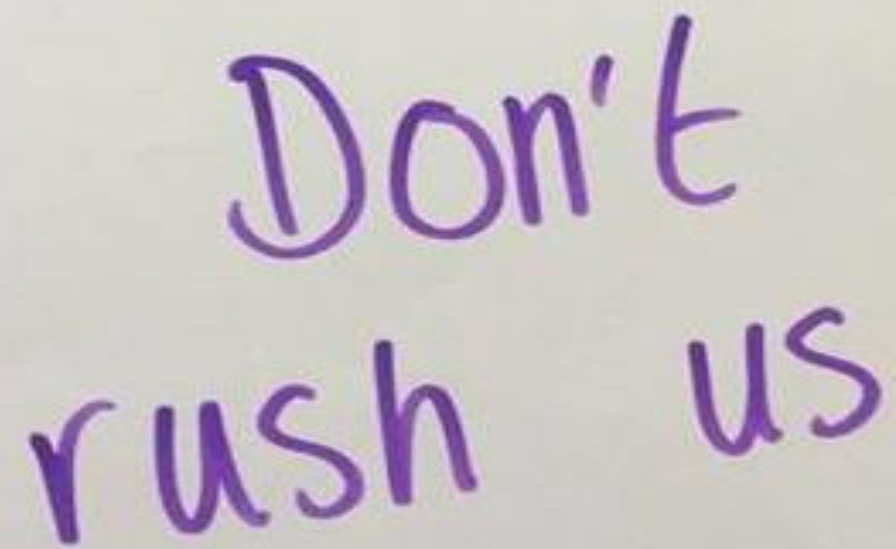 Don't
rush us